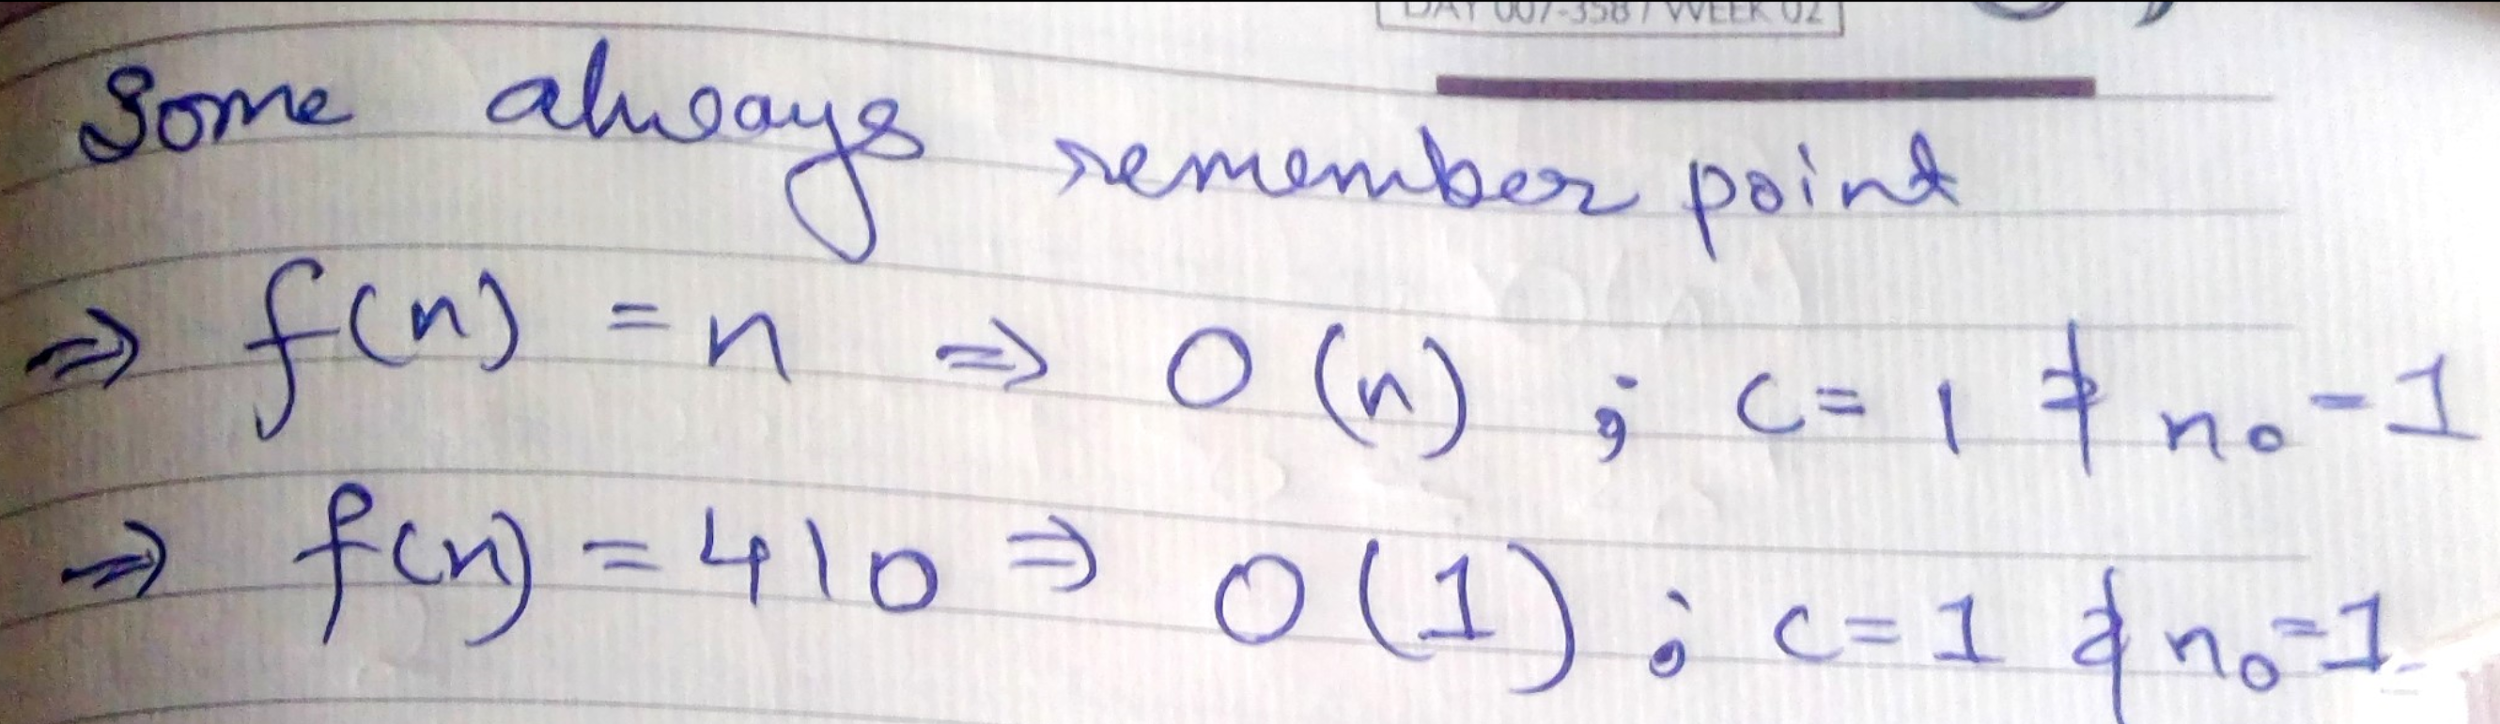 DAY 007-358 / WEEK 02
Some always remember point
⇒ f(n) = n ⇒ O(n) ; c = 1 & n₀ = 1
⇒ f(n) = 410 ⇒ O(1) ; c = 1 & n₀ = 1